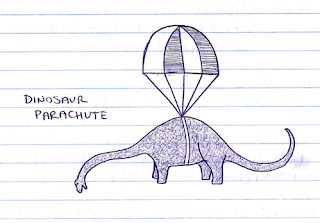 DINOSAUR
PARACHUTE